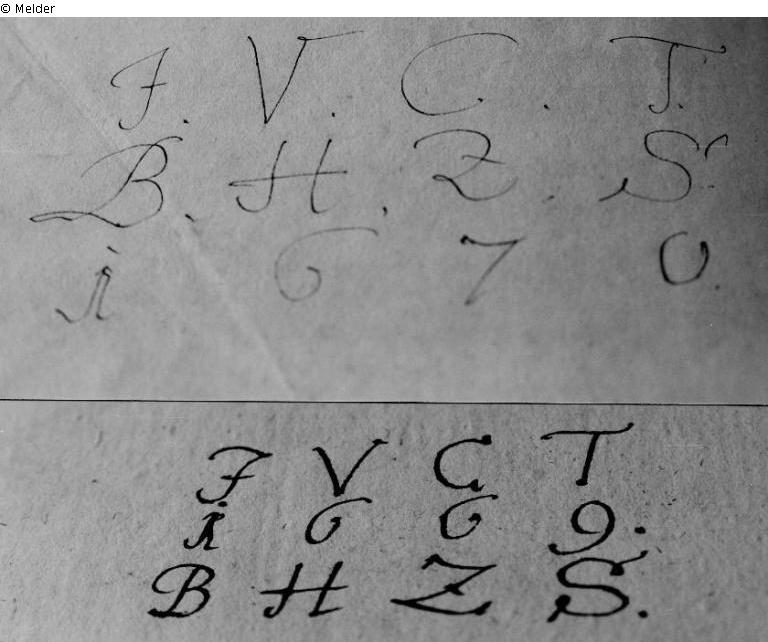 © Melder
F. V. C. T.
B. H. Z. S.
1 6 7 0.
F V C T
1 6 6 9.
B H Z S.